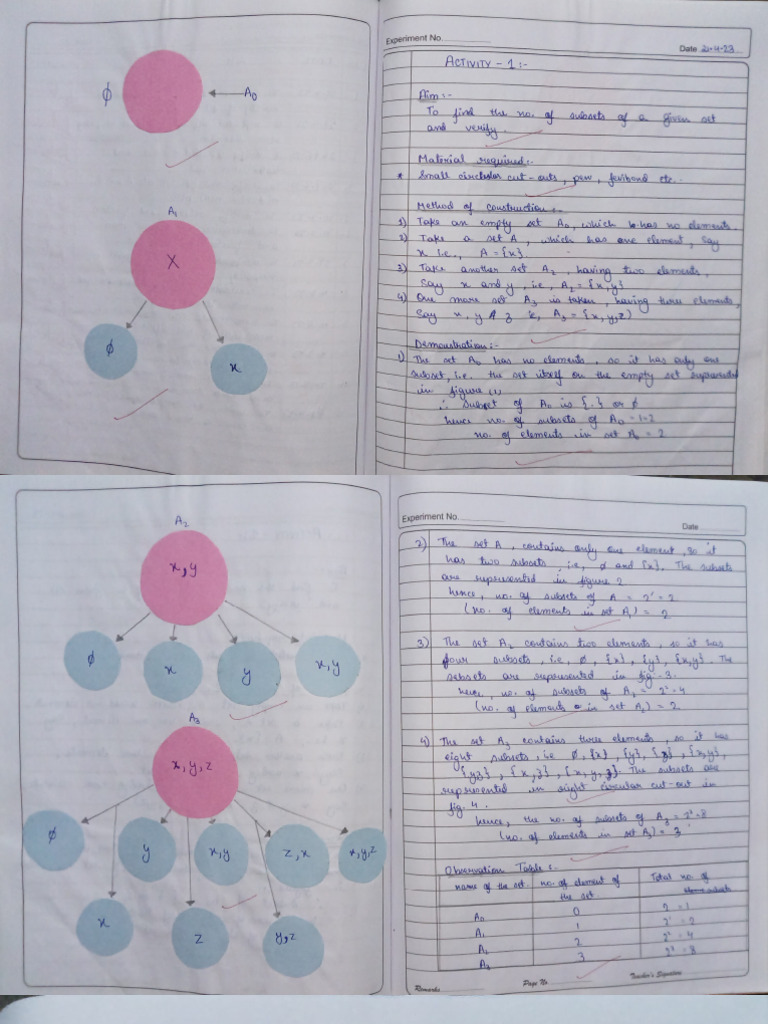 φ
A₀
A₁
X
φ
x
Experiment No.
Date 21-4-23
ACTIVITY - 1 :-
Aim :-
To find the no. of subsets of a given set
and verify.
Material required :-
* Small circular cut-outs, pen, fevibond etc.
Method of construction :-
1) Take an empty set A₀, which has no elements.
2) Take a set A, which has one element, say
x i.e., A = {x}.
3) Take another set A₂, having two elements,
say x and y, i.e, A₂ = {x,y}
4) One more set A₃ is taken, having three elements,
say x, y & z ie, A₃ = {x,y,z)
Demonstration :-
1) The set A₀ has no elements, so it has only one
subset, i.e. the set itself or the empty set represented
in figure (1)
∴ subset of A₀ is { } or φ
hence no. of subsets of A₀
no. of elements in set A₀ = 2
A₂
x, y
φ
x
y
x, y
A₃
x, y, z
φ
y
x, y
z, x
x, y, z
x
z
y, z
Experiment No.
Date
2) The set A, contains only one element, so it
has two subsets, i.e, φ and {x}. The subsets
are represented in figure 2
hence, no. of subsets of A = 2¹ = 2
(no. of elements in set A₁) = 2
3) The set A₂ contains two elements, so it has
four subsets, i.e, φ, {x}, {y}, {x,y}. The
subsets are represented in fig. 3.
here, no. of subsets of A₂ = 2² = 4
(no. of elements in set A₂) = 2
4) The set A₃ contains three elements, so it has
eight subsets, i.e φ, {x}, {y}, {z}, {x,y},
{yz}, {x,z}, {x,y,z}. The subsets are
represented in eight circular cut-out in
fig. 4.
hence, the no. of subsets of A₃ = 2³ = 8
(no. of elements in set A₃) = 3
Observation Table :-
name of the set. no. of element of Total no. of
the set.
A₀ 0 2 = 1
A₁ 1 2¹ = 2
A₂ 2 2² = 4
A₃ 3 2³ = 8
Remarks Page No Teacher's Signature